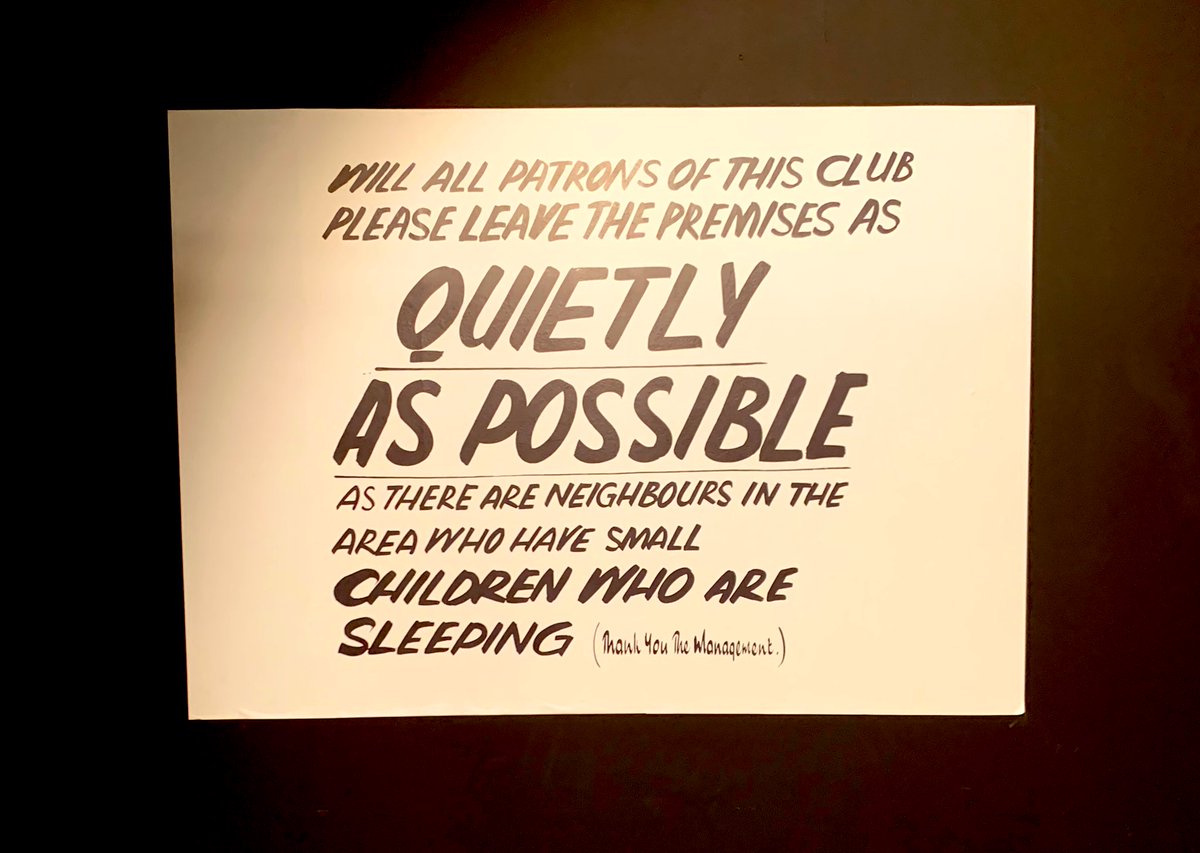 WILL ALL PATRONS OF THIS CLUB
PLEASE LEAVE THE PREMISES AS
QUIETLY
AS POSSIBLE
AS THERE ARE NEIGHBOURS IN THE
AREA WHO HAVE SMALL
CHILDREN WHO ARE
SLEEPING (Thank You The Management.)